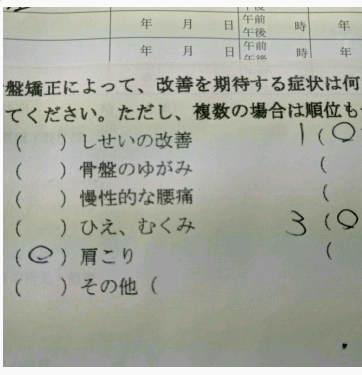 年 月 日 午前 午後 時 年
年 月 日 午前 時 年
盤矯正によって、改善を期待する症状は何
てください。ただし、複数の場合は順位も
( ) しせいの改善 1 (○
( ) 骨盤のゆがみ (
( ) 慢性的な腰痛 (
( ) ひえ、むくみ 3 (○
(○) 肩こり (
( ) その他 (